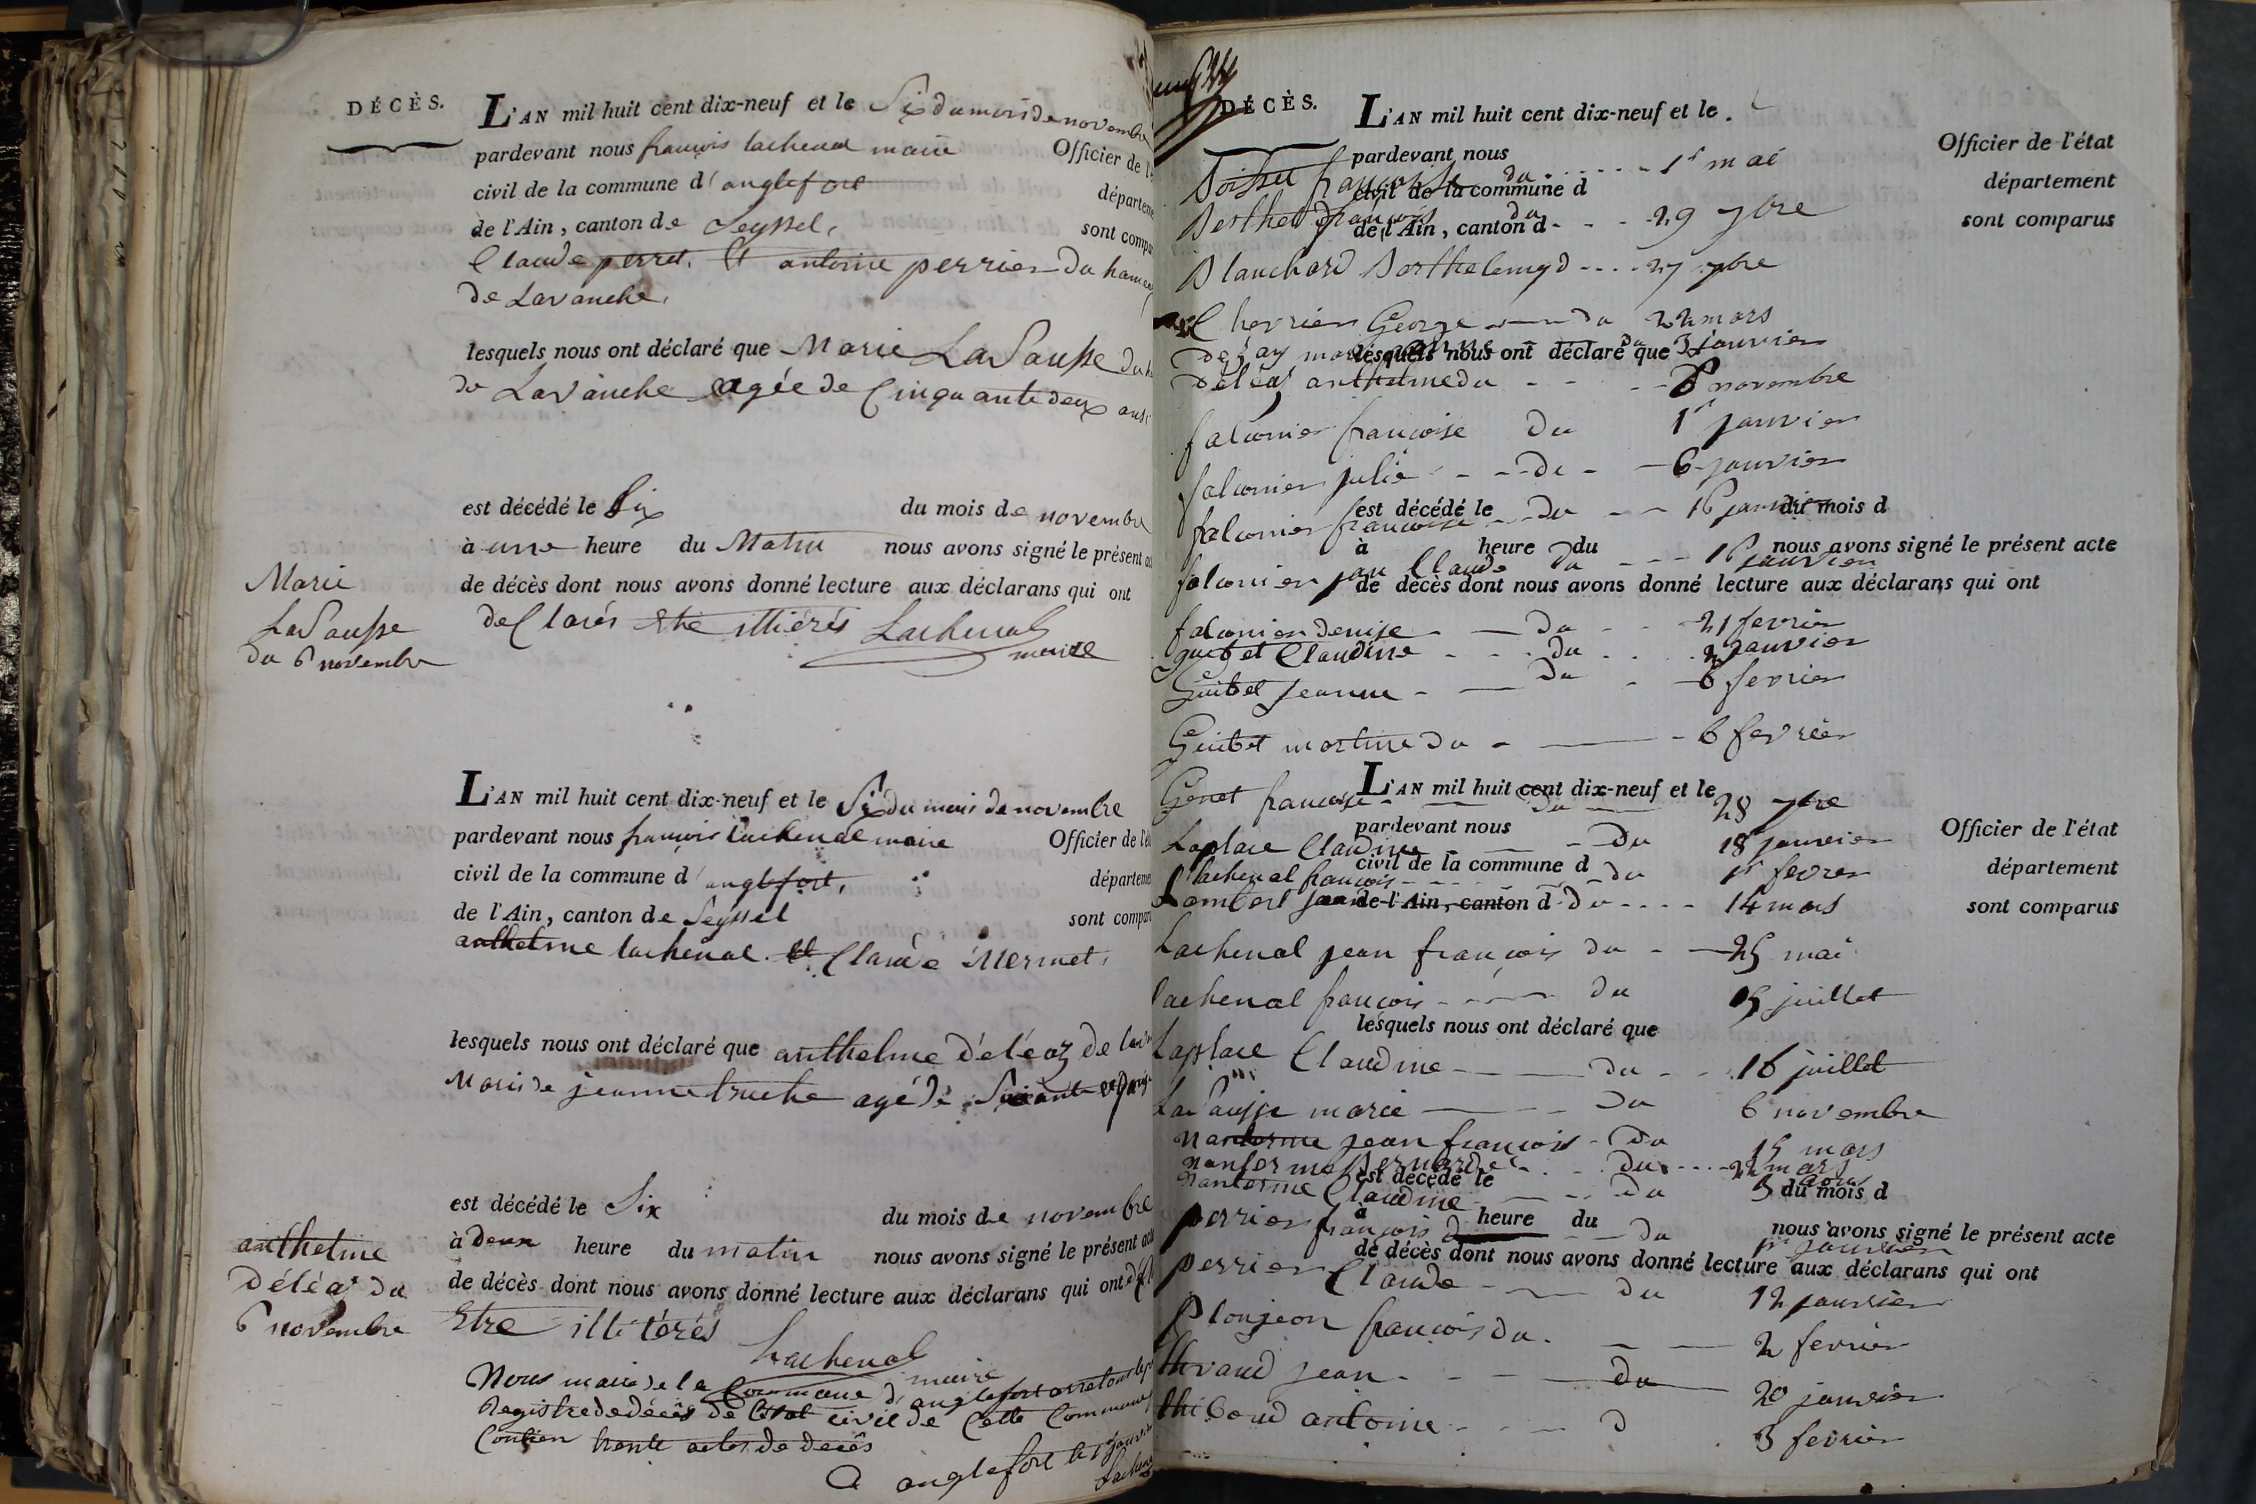 DÉCÈS.
L'AN mil huit cent dix-neuf et le Six du mois de novembre
pardevant nous françois lachenal maire Officier de l'
civil de la commune d'anglefort
départeme
de l'Ain, canton de Seyssel,
sont compar
Claude perret, Et antoine perrier Du hameau
de Lavanche,
lesquels nous ont déclaré que Marie LaSausse du
de Lavanche agée de Cinquante deux ans
est décédé le Six du mois de novembre
à une heure du Matin nous avons signé le présent
de décès dont nous avons donné lecture aux déclarans qui ont
declarés Etre illitérés Lachenal
maire
Marie
LaSausse
du 6 novembre
L'AN mil huit cent dix-neuf et le Six du mois de novembre
pardevant nous françois lachenal maire Officier de l'
civil de la commune d'anglefort,
départeme
de l'Ain, canton de Seyssel
sont compar
anthelme lachenal Et Claude Mermet,
lesquels nous ont déclaré que anthelme déléaz de
Mari de jeanne truche agé de Soixante
est décédé le Six du mois de novembre
à Deux heure du matin nous avons signé le présent
de décès dont nous avons donné lecture aux déclarans qui ont
Etre illitérés
Lachenal
maire
anthelme
Déléaz Du
6 novembre
Nous maire de la Commune d'anglefort arretons
Registre de décès de l'état civil de Cette Commune
Contien trente actes de decès
a anglefort le 1er janvier
DÉCÈS.
L'AN mil huit cent dix-neuf et le
Officier de l'état
pardevant nous
françoise du 1r mai
département
civil de la commune d
Berthet françois du 29 7bre
de l'Ain, canton d
sont comparus
Blanchard Barthelemy d 27 7bre
Chevrier George du 22 mars
lesquels nous ont déclaré que
du 3 janvier
Déléaz anthelme du 6 novembre
falconier françoise Du 1r janvier
falconier julie du 6 janvier
est décédé le du mois d
falconier françoise Du 16 janvier
à heure du nous avons signé le présent acte
falconier jean Claude Du 16 janvier
de décès dont nous avons donné lecture aux déclarans qui ont
falconier denise Du 21 fevrier
guibet Claudine du 2 janvier
Guibet jeanne Du 6 fevrier
Guibet martine Du 6 fevrier
L'AN mil huit cent dix-neuf et le
Genet françoise Du 28 7bre
pardevant nous
Officier de l'état
Laplace Claudine du 18 janvier
civil de la commune d
département
lachenal françois du 1r fevrier
de l'Ain, canton d
sont comparus
Lambert jean du 14 mars
Lachenal jean françois du 25 mai
lachenal françois du 15 juillet
lesquels nous ont déclaré que
Laplace Claudine du 16 juillet
LaSausse marie Du 6 novembre
nanterme jean françois Du 15 mars
nanterme Bernarde du 22 mars
est décédé le du mois d
nanterme Claudine du 3 aout
à heure du
perrier françois du 1r janvier
nous avons signé le présent acte
de décès dont nous avons donné lecture aux déclarans qui ont
perrier Claude du 12 janvier
Plonjeon françois du 2 fevrier
jean du 20 janvier
thiboud antoine d 3 fevrier